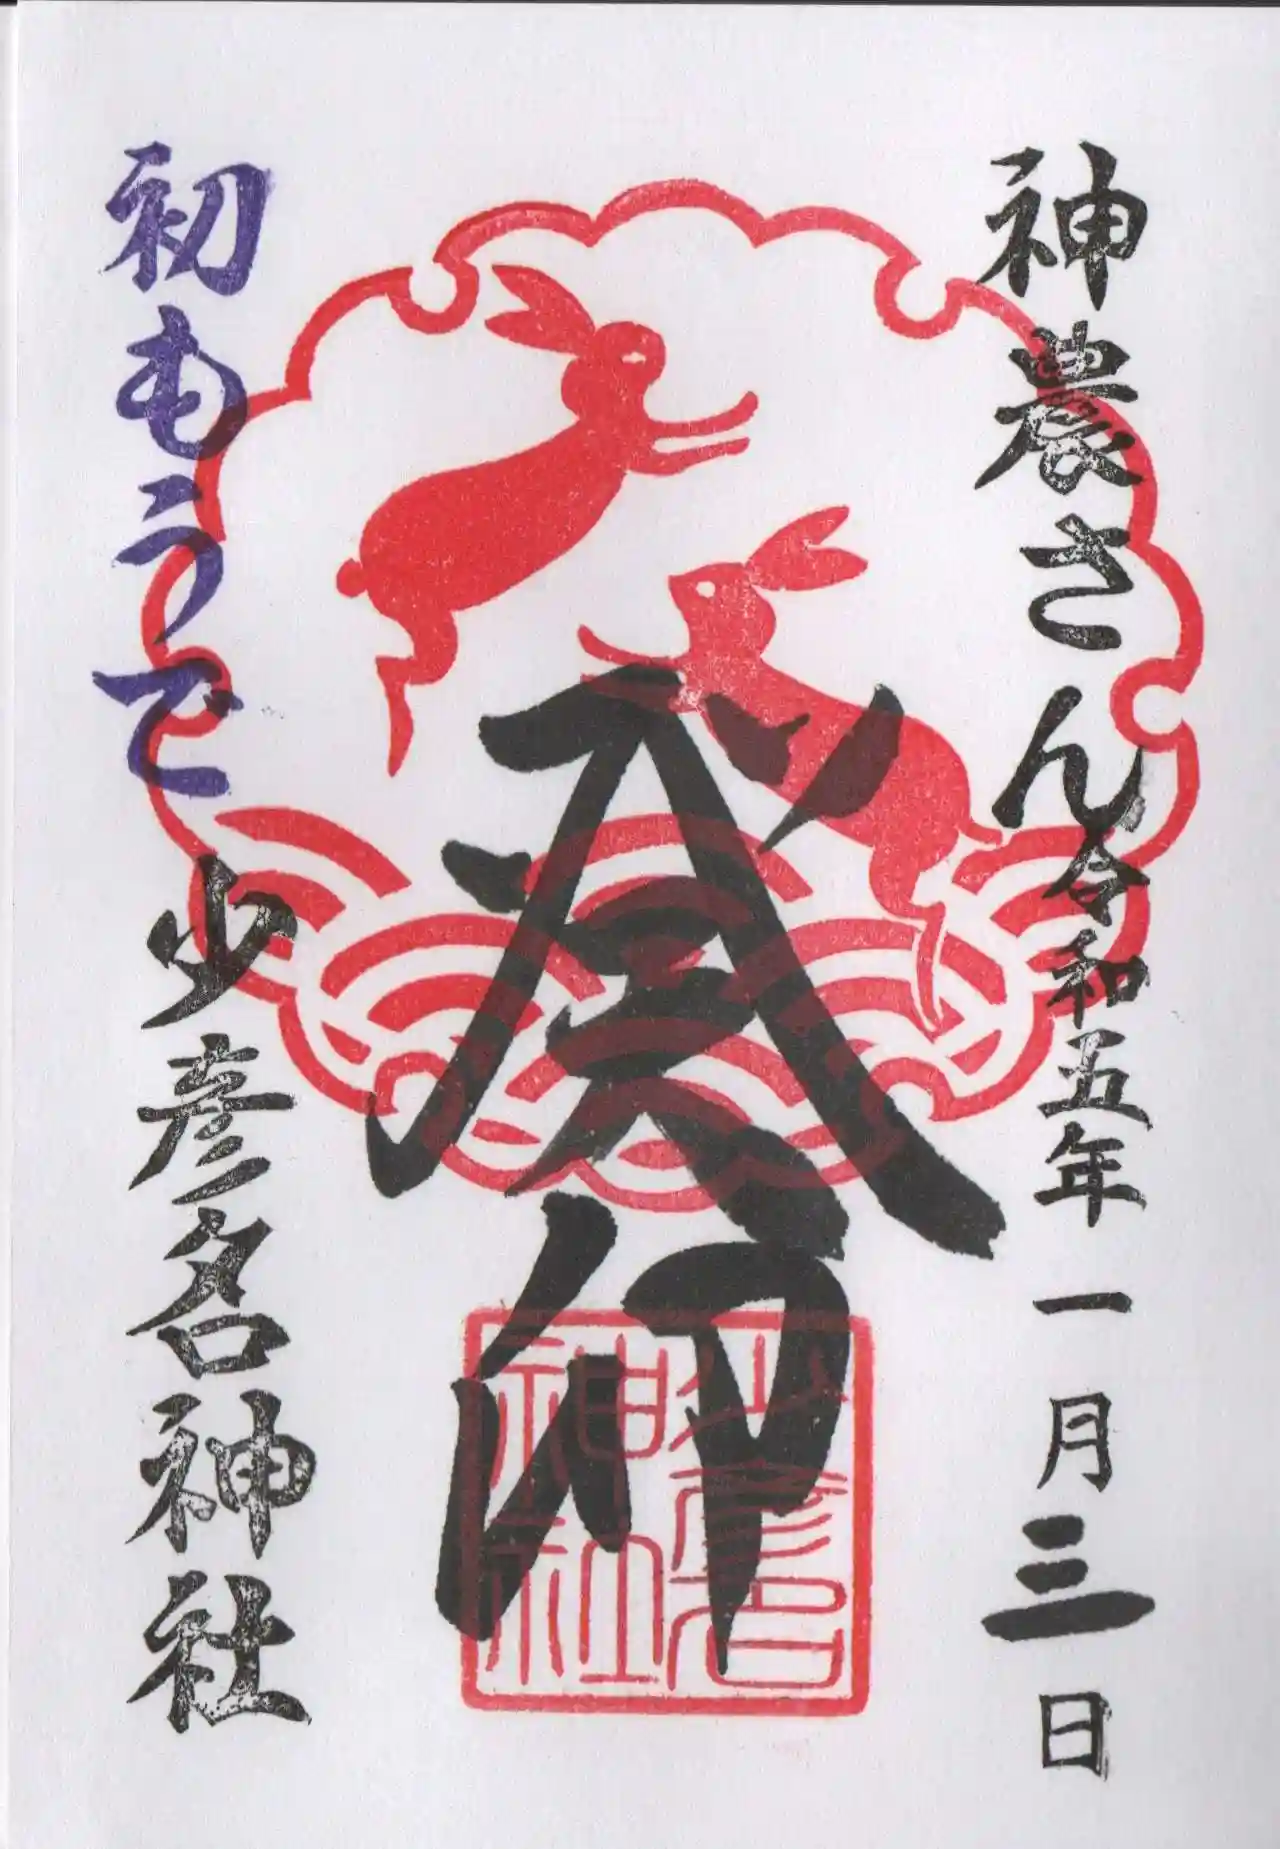 神農さん
令和五年一月三日
癸卯
少彦名
神社
初もうで
少彦名神社